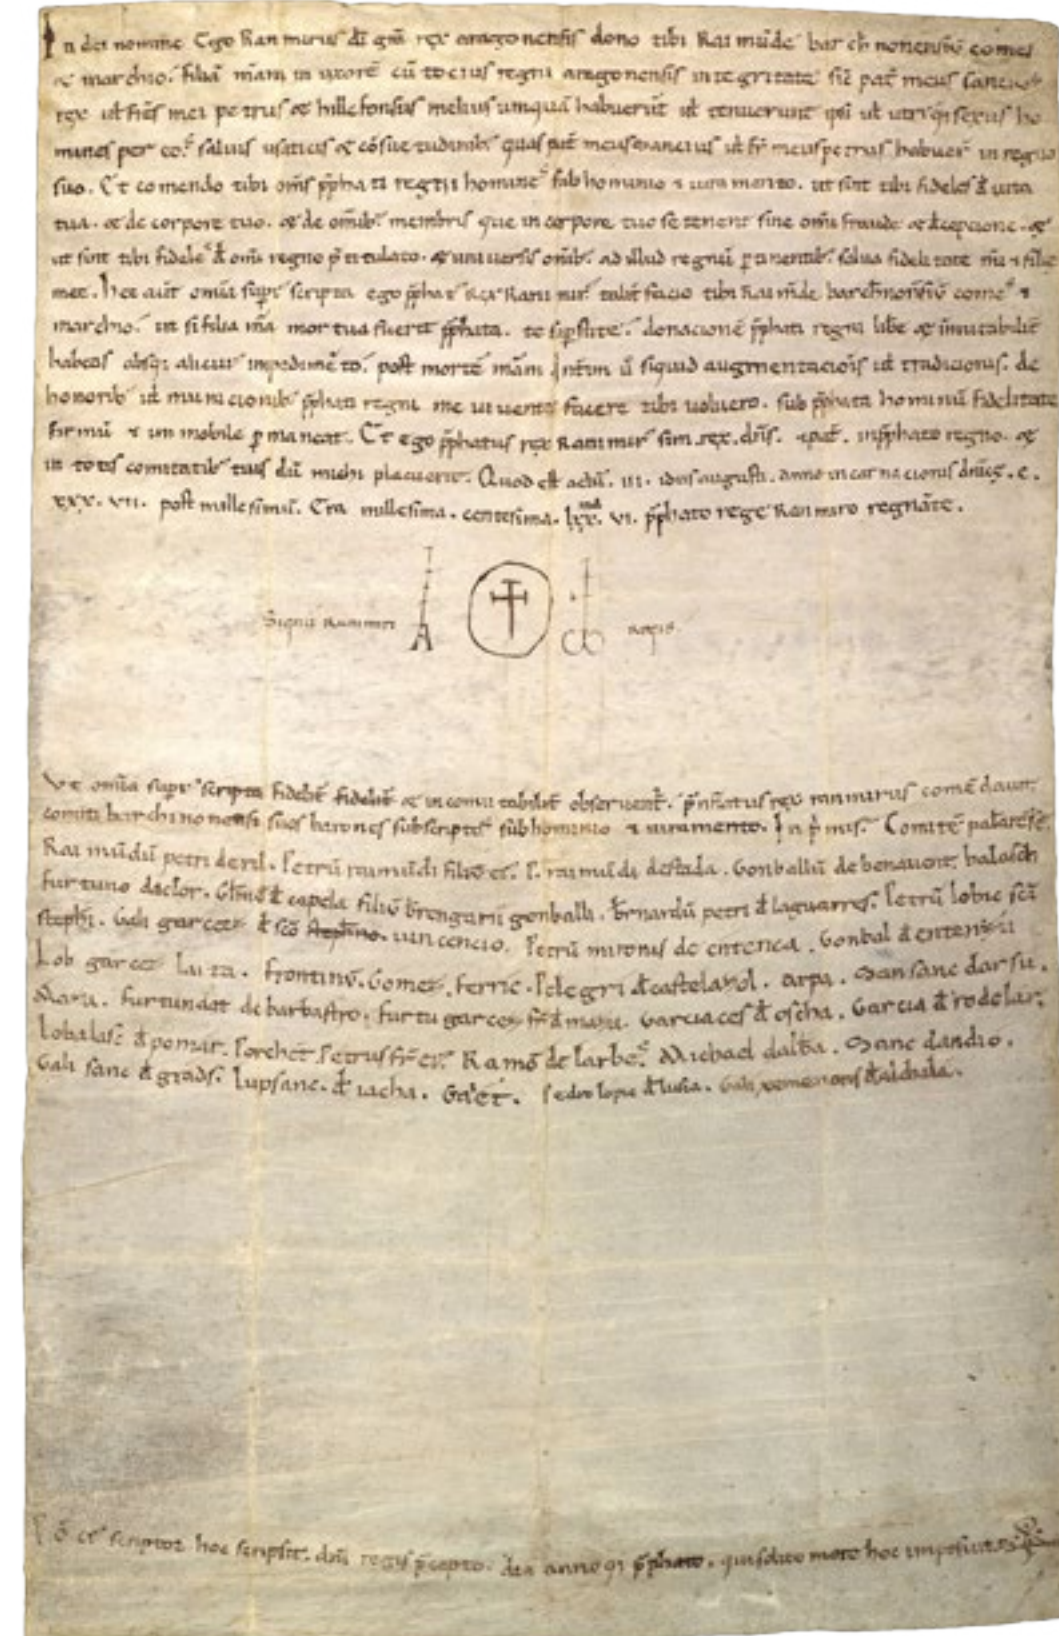 In dei nomine. Ego Ranimirus dī grā rex aragonensis dono tibi Raimūde barchinonensiū comes
& marchio. filiā mēam in uxorē cū tocius regni aragonensis integritate sic̄ pat̄ meus sancius
rex uƚ frēs mei petrus & hillefonsus melius umquā habuerūt uƚ tenuerunt ipsi uƚ utriqȝ sexus ho
mines per eos saluis usaticis & cōsuetudinibȝ quas pat̄ meus sancius uƚ fr̄ meus petrus habuer̄ in regno
suo. Et comendo tibi om̄s p̄phati regni homines sub hominio & iuramento. ut sint tibi fideles đ uita
tua. & de corpore tuo. & de om̄ibȝ membris que in corpore tuo se tenent sine om̄i fraude & đcepcione. &
ut sint tibi fideles đ om̄i regno p̄titulato. & uniuersis om̄ibȝ ad illud regnū ꝑtinentibȝ salua fidelitate m̄i & filie
mee. hec aūt om̄ia sup̄scripta ego p̄phat̄ rex Ranimir̄ talit̄ facio tibi Raimūde barch̄nonēsiū comes &
marchio. ut si filia m̄a mortua fuerit p̄phata. te sup̄stite. donacionē p̄phati regni libe & īmutabilit̄
habeas absqȝ alicui impedimēto. post mortē mēam Int̄im ū siquid augmentaciōis uƚ tradicionis. de
honoribȝ uƚ municionibȝ p̄phati regni me uiuente facere tibi uoluero. sub p̄phata hominū fidelitate
firmū & inmobile ꝑmaneat. Et ego p̄phatus rex Ranimir̄ sim rex. dn̄s. & pat̄. in p̄phato regno. &
in totis comitatibȝ tuis dū michi placuerit. Quod est actū. iii. idus augusti. anno incarnacionis dn̄ice. c.
xxx. vii. post millesimū. Era millesima. centesima. lxx. vi. p̄phato rege Ranimiro regnāte.
Signū Ranimiri A ω regis.
Ut om̄ia sup̄scripta fidelit̄ fidelit̄ & incomutabilit̄ obseruent̄. p̄nn̄atus rex ranimirus comēdauit
comiti barchinonensi suos barones subscriptos sub hominio & iuramento. In p̄mis. Comitē paƚarēsē
Raimūdū petri deril. Petrū raimūdi filiū ei. P. raimūdi destada. Gonballū de benauent. balasch
furtuno daclor. Gƚmū đ capela filiū b̄rengarii gonballi. b̄rnardū petri đ laguarres. Petrū lobic sc̄i
steph̄i. Gali garcez đ sc̄o stephano. uincencio. Petrū mironis de entenca. Gonbal đ entenza
Lob garcez Luza. Frontinū. Gomez. Ferric. Pelegri đ castelazol. arpa. Sansanc darsu.
Maza. Furtundat de barbastro. Furtu garcez fr̄ đ maza. Garciaces đ oscha. Garcia đ rodelar.
Lobalasc đ pomar. Porchet. Petrus fr̄ ei. Ramō de larbes. Michael dalb̄a. Sanc dandio.
Gali sanc đ grads. Lupsanc. đ iacha. Gaet. Pedro lopic đ lusia. Gali xemenons đ alchala.
Pōcius scriptor hoc scripsit. dn̄i regis p̄cepto. die anno qȝ p̄phato. qui solito more hoc imposuit